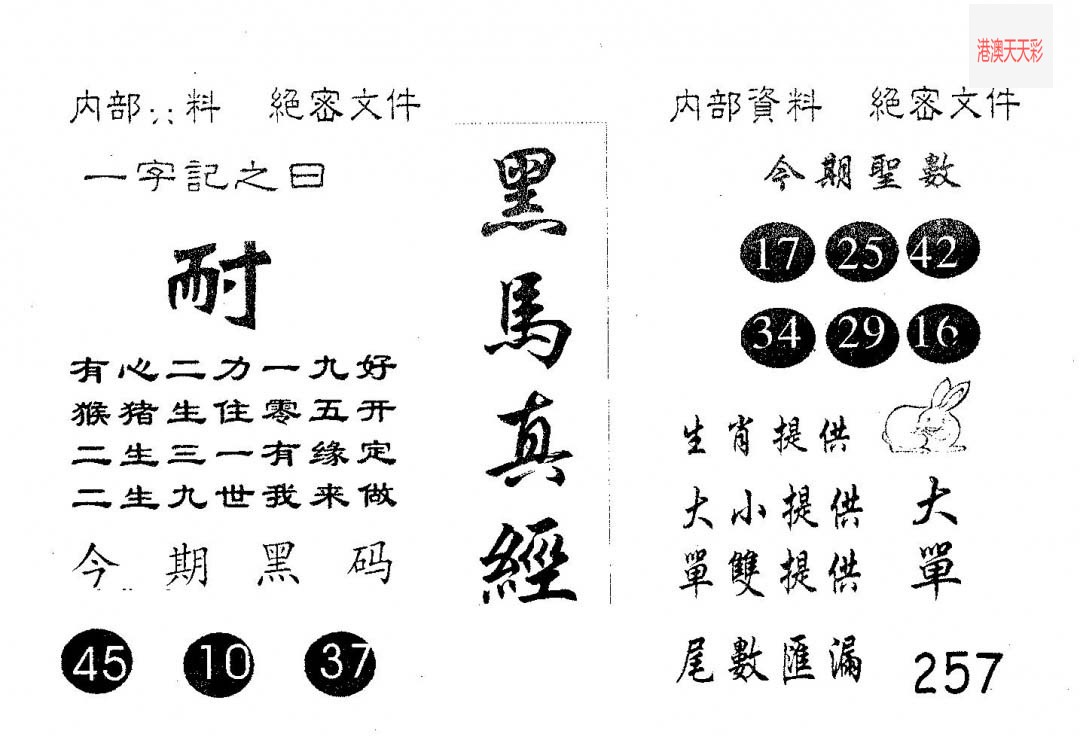 港澳天天彩
内部∴料 絕密文件
一字記之曰
耐
有心二力一九好
猴猪生住零五开
二生三一有缘定
二生九世我来做
今期黑码
45 10 37
黑馬真經
内部資料 絕密文件
今期聖數
17 25 42
34 29 16
生肖提供
大小提供 大
單雙提供 單
尾數匯漏 257